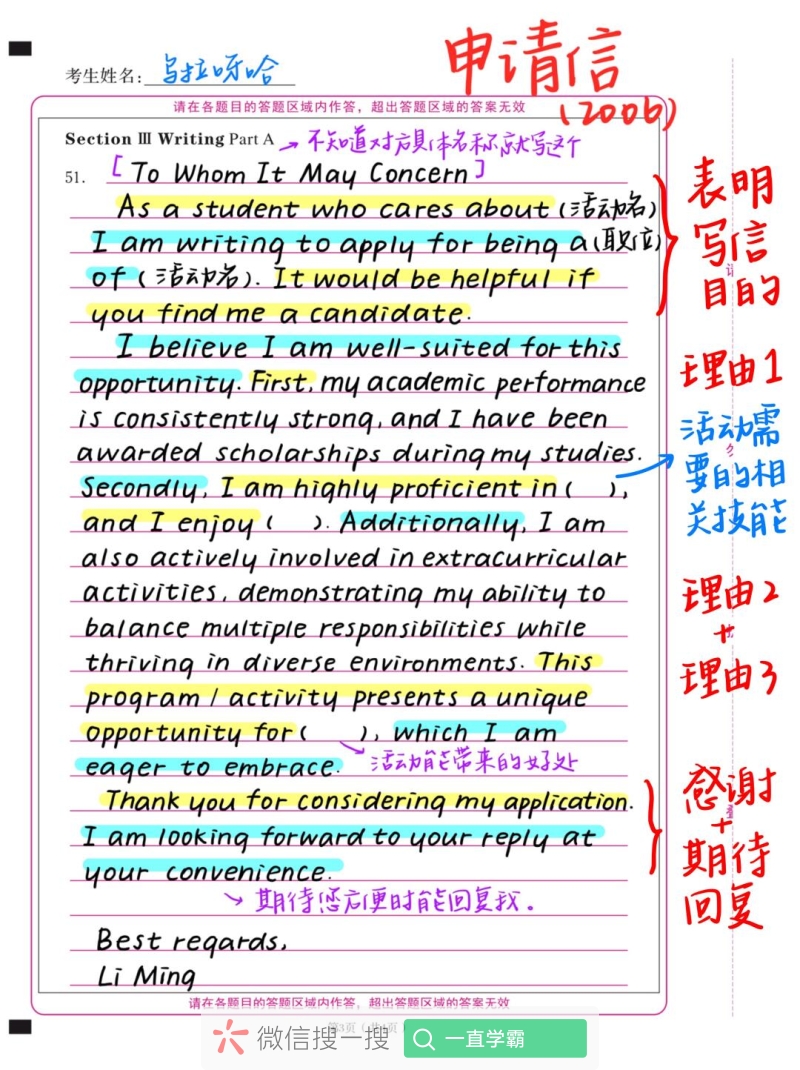 申请信
(2006)
考生姓名: 乌拉呀哈
请在各题目的答题区域内作答，超出答题区域的答案无效
Section Ⅲ Writing Part A → 不知道对方具体名称就写这个
51. [To Whom It May Concern]
As a student who cares about (活动名)
I am writing to apply for being a (职位)
of (活动名). It would be helpful if
you find me a candidate.
表明
写信
目的
I believe I am well-suited for this
opportunity. First, my academic performance
is consistently strong, and I have been
awarded scholarships during my studies.
理由1
Secondly, I am highly proficient in (  ),
and I enjoy (  ). Additionally, I am
活动需
要的相
关技能
also actively involved in extracurricular
activities, demonstrating my ability to
balance multiple responsibilities while
thriving in diverse environments. This
理由2
+
理由3
program / activity presents a unique
opportunity for (  ), which I am
eager to embrace. 活动能带来的好处
Thank you for considering my application.
I am looking forward to your reply at
your convenience.
→ 期待您方便时能回复我.
感谢
+
期待
回复
Best regards,
Li Ming
请在各题目的答题区域内作答，超出答题区域的答案无效
微信搜一搜 一直学霸